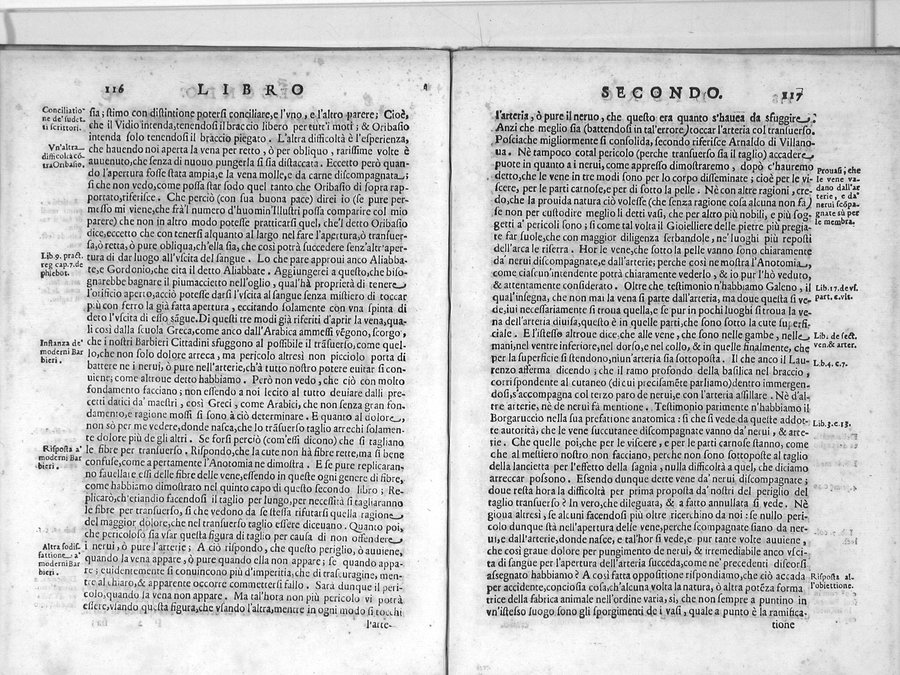 116 LIBRO
Conciliatione de' sudetti scrittori.
Vn'altra difficoltà cótra Oribasio.
Lib. 9. pract. reg cap. 7. de phlebot.
Instanza de' moderni Barbieri.
Risposta a' moderni Barbieri.
Altra sodisfattione a' moderni Barbieri.
sia; stimo con distintione potersi conciliare, e l'vno, e l'altro parere; Cioè,
che il Vidio intenda, tenendosi il braccio libero per tutt'i moti; & Oribasio
intenda solo tenendosi il braccio piegato. L'altra difficoltà è l'esperienza,
che hauendo noi aperta la vena per retto, ò per obliquo, rarissime volte è
auuenuto, che senza di nuouo pungerla si sia distaccata. Eccetto però quan-
do l'apertura fosse stata ampia, e la vena molle, e da carne discompagnata;
si che non vedo, come possa star sodo quel tanto che Oribasio di sopra rap-
portato, riferisce. Che perciò (con sua buona pace) direi io (se pure per-
messo mi viene, che frà'l numero d'huomin'Illustri possa comparire col mio
parere) che non in altro modo potesse pratticarsi quel, che'l detto Oribasio
dice, eccetto che con tenersi alquanto al largo nel fare l'apertura, ò transuer-
sa, ò retta, ò pure obliqua, ch'ella sia, che così potrà succedere senz'altr'aper-
tura di dar luogo all'vscita del sangue. Lo che pare approui anco Aliabba-
te, e Gordonio, che cita il detto Aliabbate. Aggiungerei a questo, che biso-
gnarebbe bagnare il piumaccietto nell'oglio, qual'hà proprietà di tenere
l'orificio aperto, acciò potesse darsi l'vscita al sangue senza mistiero di toccar
più con ferro la già fatta apertura, eccitando solamente con vna spinta di
deto l'vscita di esso sãgue. Di questi tre modi già riferiti d'aprir la vena, qua-
li così dalla scuola Greca, come anco dall'Arabica ammessi vẽgono, scorgo,
che i nostri Barbieri Cittadini sfuggono al possibile il trãsuerso, come quel-
lo, che non solo dolore arreca, ma pericolo altresì non picciolo porta di
battere ne i nerui, ò pure nell'arterie, ch'à tutto nostro potere euitar si con-
uiene; come altroue detto habbiamo. Però non vedo, che ciò con molto
fondamento facciano; non essendo a noi lecito al tutto deuiare dalli pre-
cetti datici da' maestri, così Greci, come Arabici, che non senza gran fon-
damento, e ragione mossi si sono à ciò determinare. E quanto al dolore,
non sò per me vedere, donde nasca, che lo trãsuerso taglio arrechi solamen-
te dolore più de gli altri. Se forsi perciò (com'essi dicono) che si tagliano
le fibre per transuerso. Rispondo, che la cute non hà fibre rette, ma si bene
confuse, come apertamente l'Anotomia ne dimostra. E se pure replicaran-
no fauellare essi delle fibre delle vene, essendo in queste ogni genere di fibre,
come habbiamo dimostrato nel quinto capo di questo secondo libro; Re-
plicarò, ch'etiandio facendosi il taglio per lungo, per necessità si tagliaranno
le fibre per transuerso, si che vedono da se stessi rifutarsi quella ragione
del maggior dolore, che nel transuerso taglio essere diceuano. Quanto poi,
che pericoloso sia vsar questa figura di taglio per causa di non offendere
i nerui, ò pure l'arterie; A ciò rispondo, che questo periglio, ò auuiene,
quando la vena appare, ò pure quando ella non appare; se quando appa-
re; euidentemente si conuincono più d'imperitia, che di trascuragine, men-
tre al chiaro, & apparente occorre commettersi fallo. Sara dunque il peri-
colo, quando la vena non appare. Ma tal'hora non più pericolo vi potrà
essere, vsando questa figura, che vsando l'altra, mentre in ogni modo si tocchi
l'arte-
SECONDO. 117
l'arteria, ò pure il neruo, che questo era quanto s'hauea da sfuggire;
Anzi che meglio sia (battendosi in tal'errore) toccar l'arteria col transuerso.
Posciache migliormente si consolida, secondo riferisce Arnaldo di Villano-
ua. Nè tampoco cotal pericolo (perche transuerso sia il taglio) accadere
puote in quanto a i nerui, come appresso dimostraremo, dopò c'hauremo
detto, che le vene in tre modi sono per lo corpo disseminate; cioè per le vi-
scere, per le parti carnose, e per di sotto la pelle. Nè con altre ragioni, cre-
do, che la prouida natura ciò volesse (che senza ragione cosa alcuna non fa)
se non per custodire meglio li detti vasi, che per altro più nobili, e più sog-
getti a' pericoli sono; si come tal volta il Gioielliere delle pietre più pregia-
te far suole, che con maggior diligenza serbandole, ne' luoghi più reposti
dell'arca le riserra. Hor le vene, che sotto la pelle vanno sono chiaramente
da' nerui discompagnate, e dall'arterie; perche così ne mostra l'Anotomia,
come ciascun'intendente potrà chiaramente vederlo, & io pur l'hò veduto,
& attentamente considerato. Oltre che testimonio n'habbiamo Galeno, il
qual'insegna, che non mai la vena si parte dall'arteria, ma doue questa si ve-
de, iui necessariamente si troua quella, e se pur in pochi luoghi si troua la ve-
na dell'arteria diuisa, questo è in quelle parti, che sono sotto la cute superfi-
ciale. E l'istesso altroue dice, che alle vene, che sono nelle gambe, nelle
mani, nel ventre inferiore, nel dorso, e nel collo, & in quelle finalmente, che
per la superficie si stendono, niun'arteria sia sottoposta. Il che anco il Lau-
renzo afferma dicendo; che il ramo profondo della basilica nel braccio,
corrispondente al cutaneo (di cui precisamẽte parliamo) dentro immergen-
dosi, s'accompagna col terzo paro de nerui, e con l'arteria assillare. Nè d'al-
tre arterie, nè de nerui fa mentione. Testimonio parimente n'habbiamo il
Borgaruccio nella sua prefatione anatomica: si che si vede da queste addot-
te autorità, che le vene succutanee discompagnate vanno da' nerui, & arte-
rie. Che quelle poi, che per le viscere, e per le parti carnose stanno, come
che al mestiero nostro non facciano, perche non sono sottoposte al taglio
della lancietta per l'effetto della sagnia, nulla difficoltà a quel, che diciamo
arreccar possono. Essendo dunque dette vene da' nerui discompagnate;
doue resta hora la difficoltà per prima proposta da' nostri del periglio del
taglio transuerso? In vero, che dileguata, & a fatto annullata si vede. Nè
gioua altresì, se alcuni facendosi più oltre ricerchino da noi: se nullo peri-
colo dunque stà nell'apertura delle vene, perche scompagnate siano da ner-
ui, e dall'arterie, donde nasce, e tal'hor si vede, e pur tante volte auuiene,
che così graue dolore per pungimento de nerui, & irremediabile anco vsci-
ta di sangue per l'apertura dell'arteria succeda, come ne' precedenti discorsi
assegnato habbiamo? A così fatta oppositione rispondiamo, che ciò accada
per accidente, conciosia cosa, ch'alcuna volta la natura, ò altra potẽza forma
trice della fabrica animale nell'ordine varia, si, che non sempre a puntino in
vn'istesso luogo sono gli sporgimenti de i vasi, quale a punto è la ramifica-
tione
Prouasi, che le vene vadano dall'arterie, e da' nerui scõpagnate sù per le membra.
Lib. 17. de vs. part. e. vis.
Lib. de sect. ven. & arter.
Lib. 4. c. 7.
Lib. 3. c. 13.
Risposta all'obiettione.